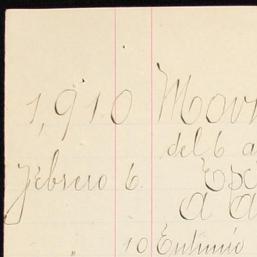 1,910 Movi
del 6 a
Febrero 6. Esc
a a
" 10 Eutimio